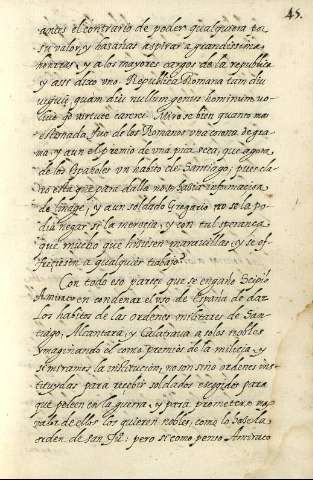 45.
antes el contrario de poder qualquiera por
su valor, y hazañas aspirar a grandissimas
honrras, y a los mayores cargos de la republica
y assi dixo uno. Republica Romana tam diu
viguit, quam diu nullum genus hominum vo-
luit virtute carere. Mire se bien quanto mas
estimada fue de los Romanos una corona de gra-
ma, y aun el premio de una pica seca, que agora
de los Españoles un habito de Santiago; pues cla-
ro esta que para dalla no se habia informacion
de linage, y aun soldado Gregario no se la po-
dia negar si la merecia, y con tal sperança
que mucho que hiziesen marauillas, y se of-
freciesen a qualquier trabajo?
Con todo eso parece que se engaño Scipio
Amirato en condenar el uso de España de dar
los habitos de las ordenes militares de San-
tiago, Alcantara, y Calatraua a solos nobles
ymaginando el como premios de la milicia, y
si miramos la institucion, no son sino ordenes ins-
tituydas para recebir soldados escogidos para
que peleen en la guerra, y para prometerse mas
de ellos los quieren nobles, como lo haze la
orden de San Ju.: pero si como penso Amirato